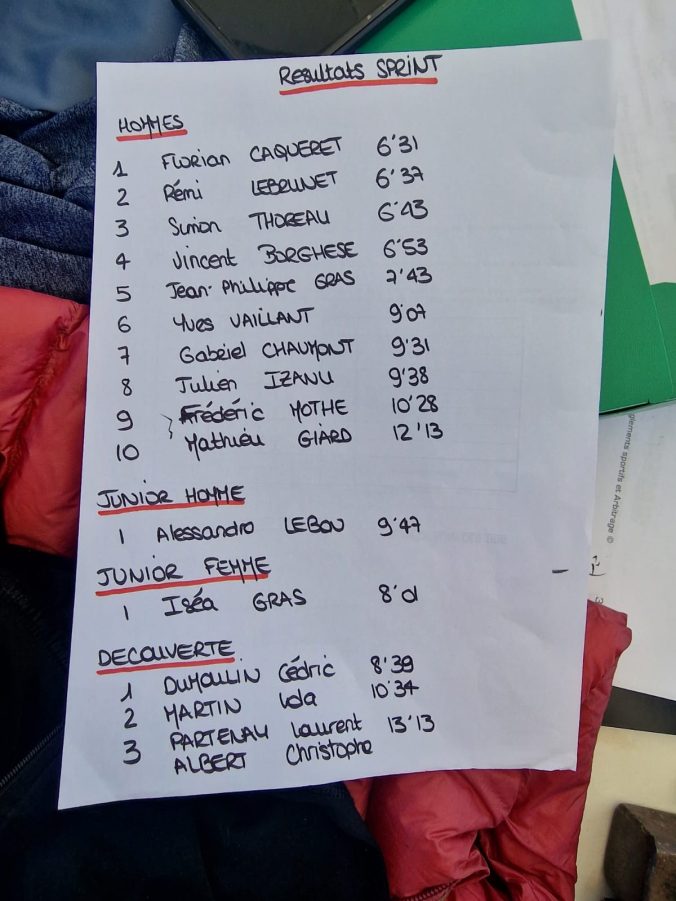 Resultats SPRINT
HOMMES
1 Florian CAQUERET 6'31
2 Rémi LEBRUNET 6'37
3 Simon THOREAU 6'43
4 Vincent BORGHESE 6'53
5 Jean-Philippe GRAS 7'43
6 Yves VAILLANT 9'07
7 Gabriel CHAUMONT 9'31
8 Julien IZANU 9'38
9 Frédéric MOTHE 10'28
10 Mathieu GIARD 12'13
JUNIOR HOMME
1 Alessandro LEBON 9'47
JUNIOR FEMME
1 Iséa GRAS 8'01
DECOUVERTE
1 DUMOULIN Cédric 8'39
2 MARTIN Lola 10'34
3 PARTENAY Laurent 13'13
ALBERT Christophe
glements sportifs et Arbitrage ©